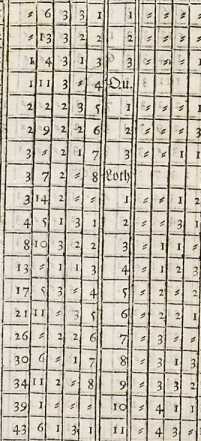 ⸗ 6 3 3 1 1 ⸗ ⸗ ⸗ ⸗
⸗ 13 3 2 2 2 ⸗ ⸗ ⸗ ⸗
1 4 3 1 3 3 ⸗ ⸗ ⸗
1 11 3 ⸗ 4 Qu.
2 2 2 3 5 1 ⸗ ⸗ ⸗ ⸗
2 9 2 2 6 2 ⸗ ⸗ ⸗ 3
3 ⸗ 2 1 7 3 ⸗ ⸗ 1 1
3 7 2 ⸗ 8 Loth
3 14 2 ⸗ ⸗ 1 ⸗ ⸗ 1 2
4 5 1 3 1 2 ⸗ ⸗ 3 1
8 10 3 2 2 3 ⸗ 1 1 ⸗
13 ⸗ 1 1 3 4 ⸗ 1 2 3
17 5 3 ⸗ 4 5 ⸗ 2 ⸗ 2
21 11 ⸗ 3 5 6 ⸗ 2 2 1
26 ⸗ 2 2 6 7 ⸗ 3 ⸗ ⸗
30 6 ⸗ 1 7 8 ⸗ 3 1 3
34 11 2 ⸗ 8 9 ⸗ 3 3 2
39 1 ⸗ ⸗ ⸗ 10 ⸗ 4 1 1
43 6 1 3 1 11 ⸗ 4 3 ⸗